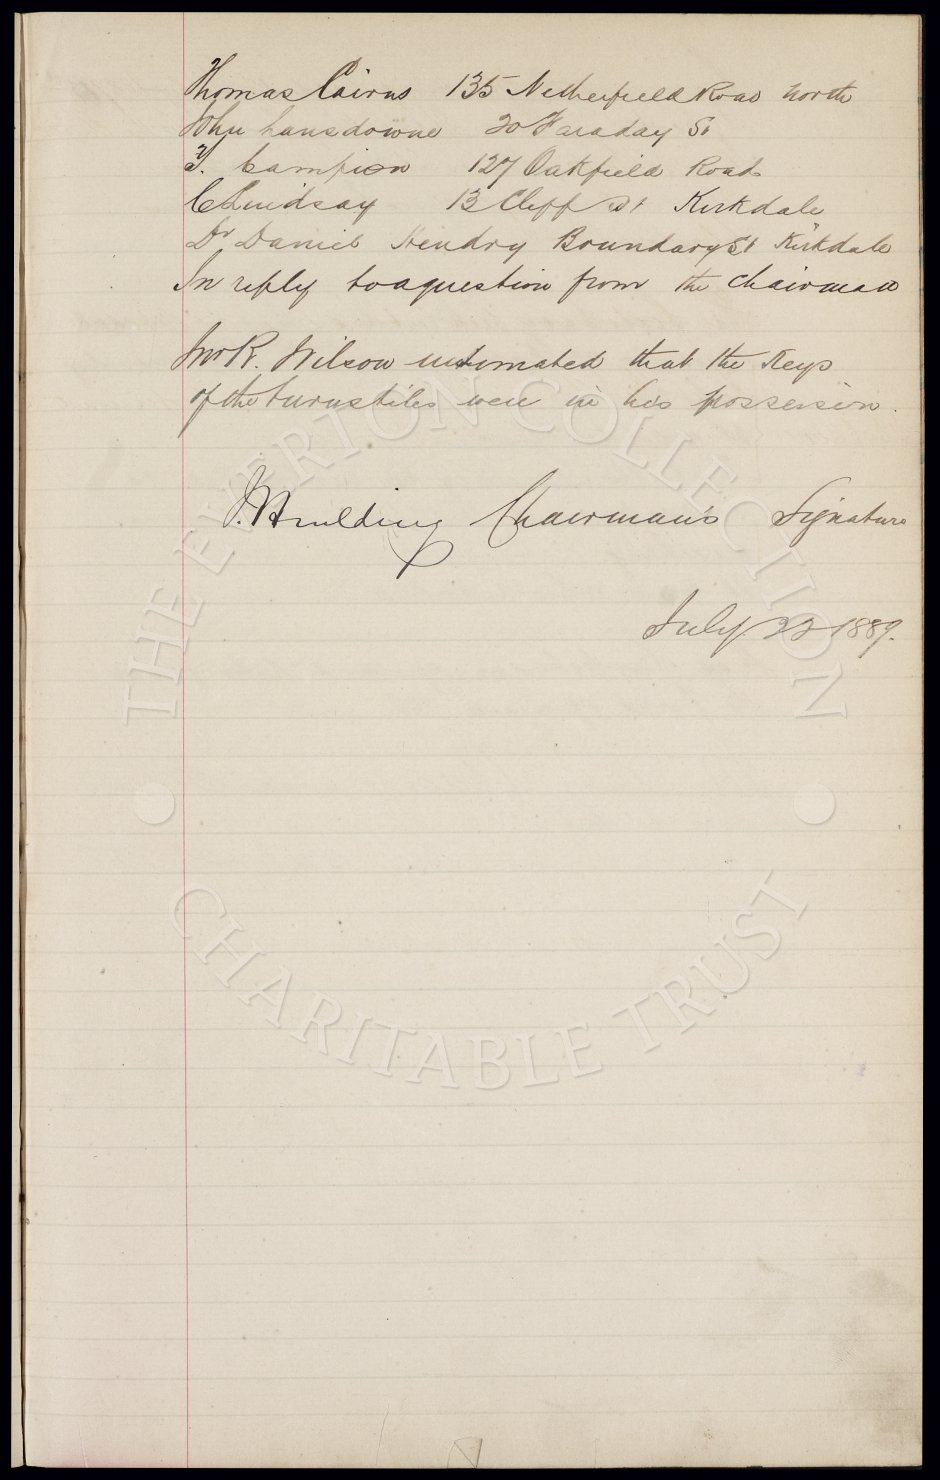 Thomas Cairns 135 Netherfield Road North
John Lansdowne 20 Faraday St
T. Campion 127 Oakfield Road
C Lindsay 13 Cliff St Kirkdale
Dr Daniel Hendry Boundary St Kirkdale
In reply to a question from the Chairman
Mr R. Wilson intimated that the Keys
of the turnstiles were in his possession.
Chairman's Signature
July 22 1889.
THE EVERTON COLLECTION
CHARITABLE TRUST